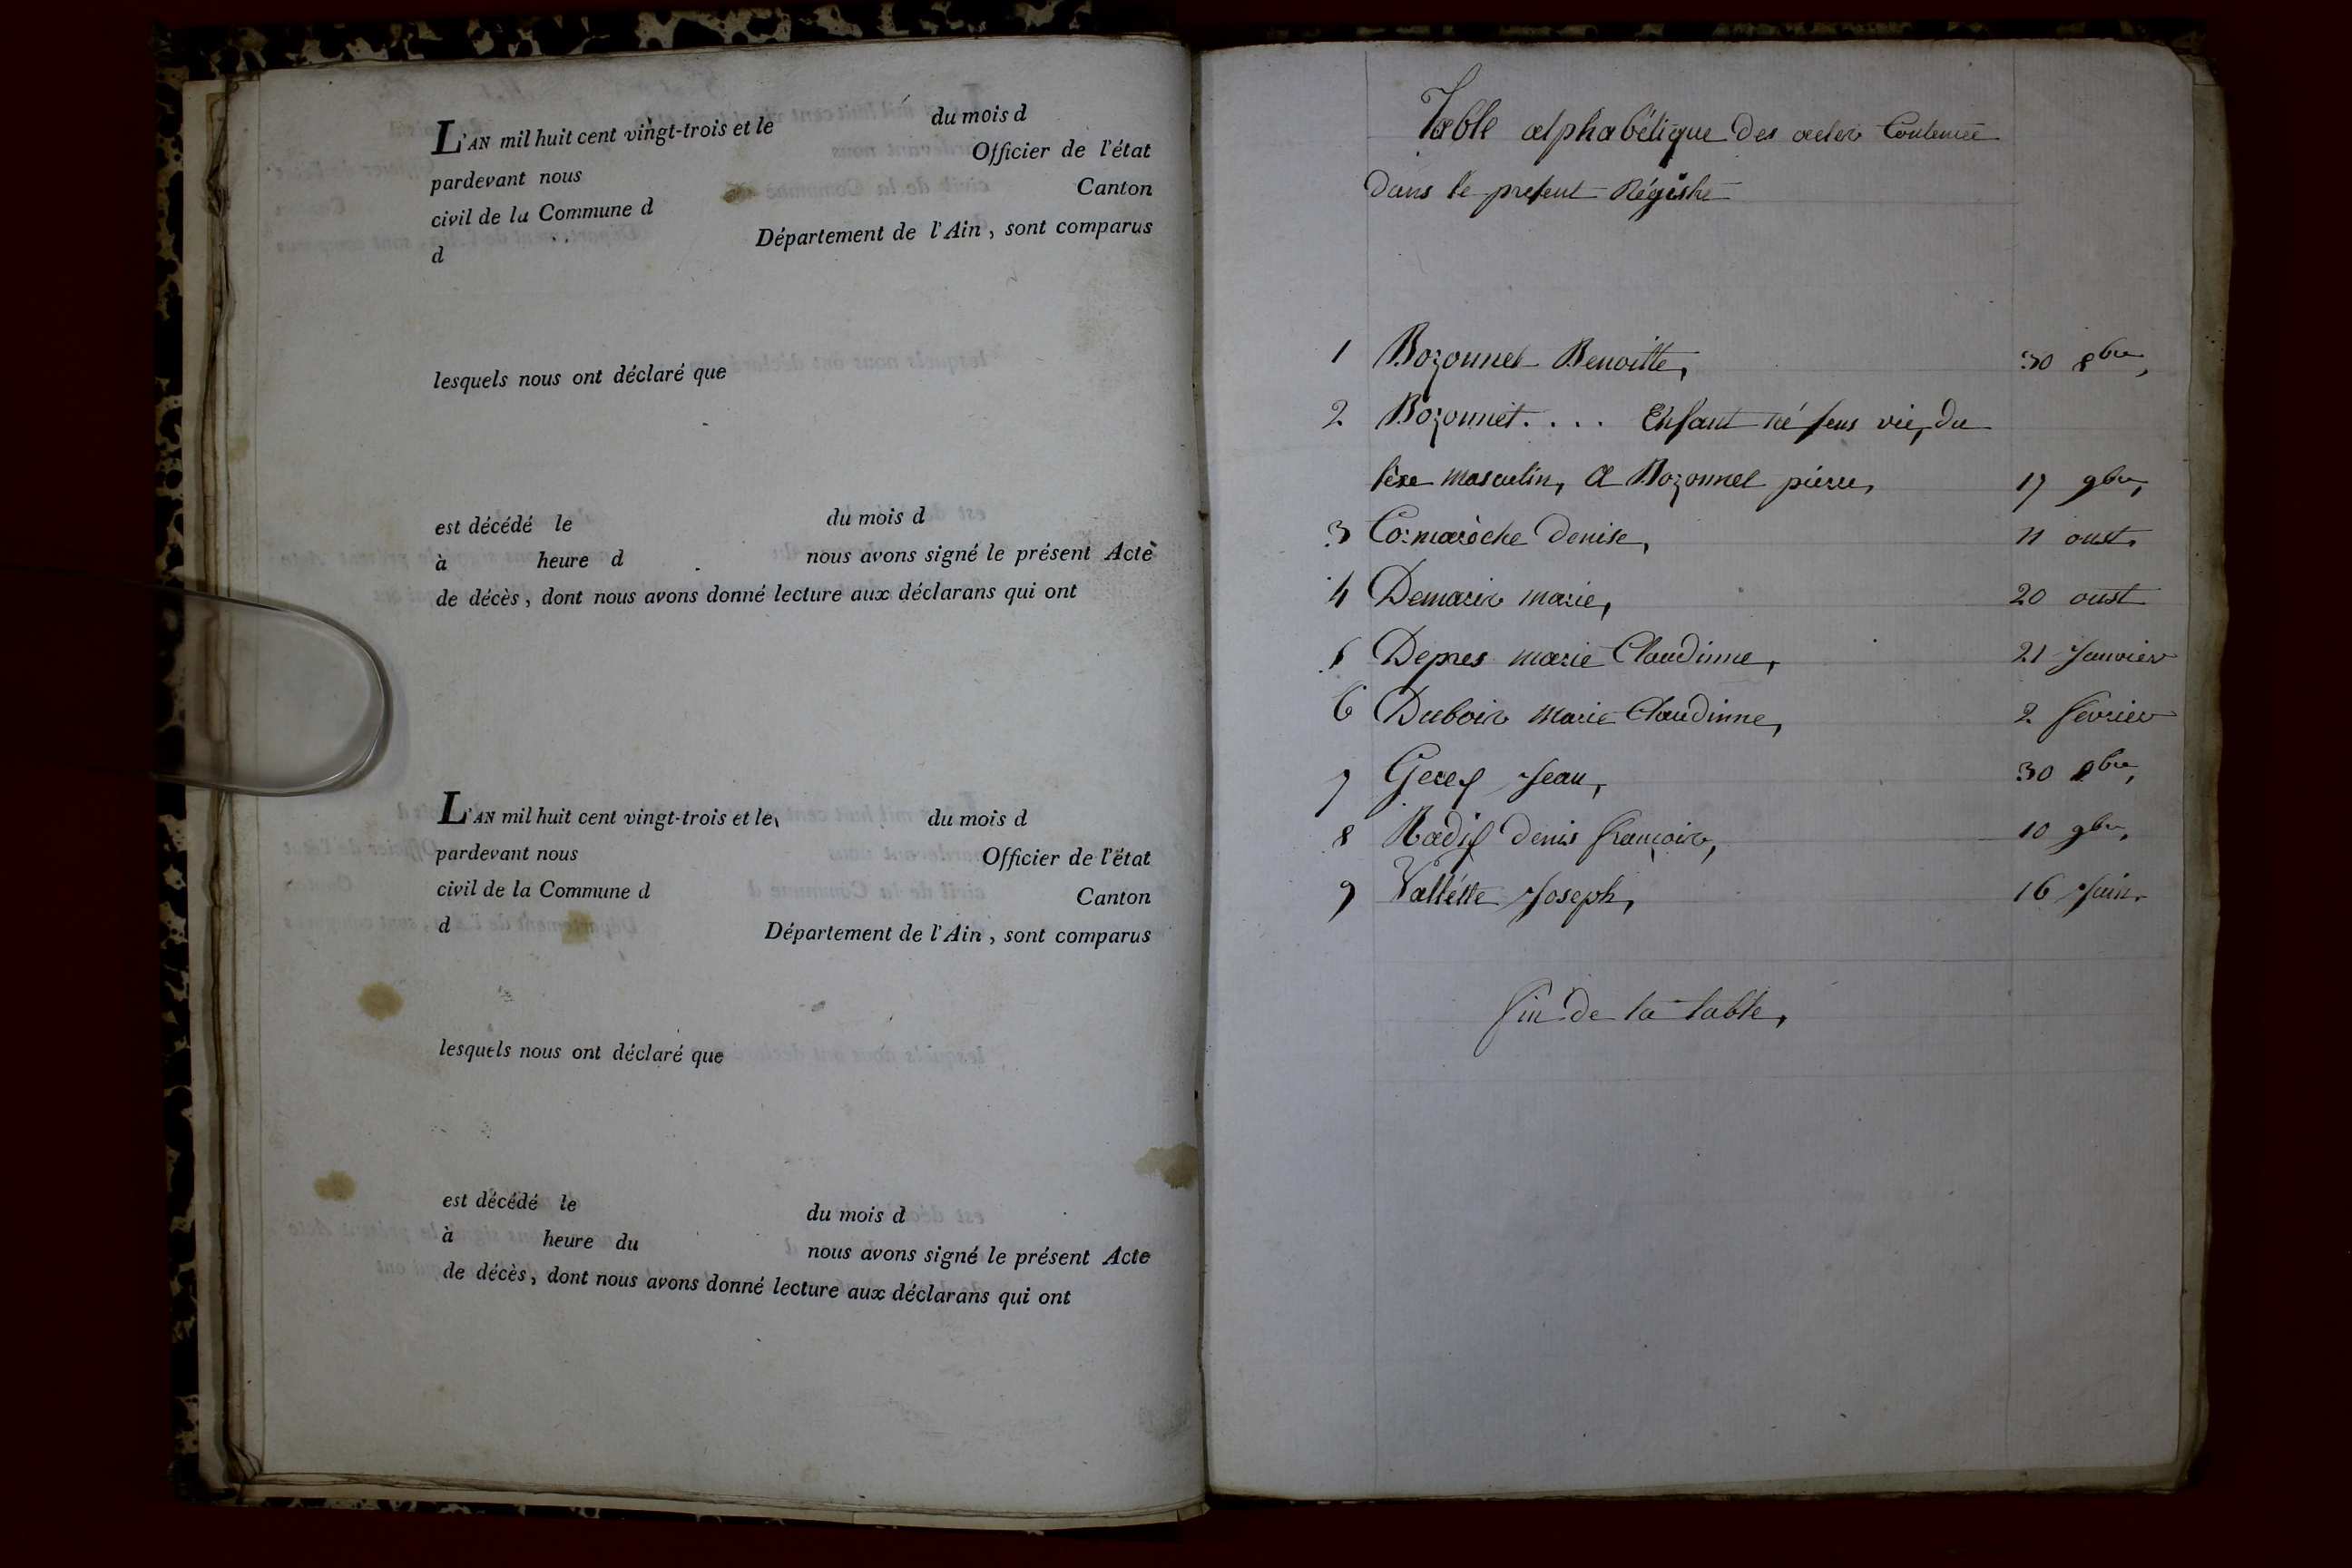 L'AN mil huit cent vingt-trois et le du mois d
pardevant nous Officier de l'état
civil de la Commune d Canton
d Département de l'Ain, sont comparus
lesquels nous ont déclaré que
est décédé le du mois d
à heure d nous avons signé le présent Acte
de décès, dont nous avons donné lecture aux déclarans qui ont
L'AN mil huit cent vingt-trois et le du mois d
pardevant nous Officier de l'état
civil de la Commune d Canton
d Département de l'Ain, sont comparus
lesquels nous ont déclaré que
est décédé le du mois d
à heure du nous avons signé le présent Acte
de décès, dont nous avons donné lecture aux déclarans qui ont
Table alphabétique des actes Contenue
dans le present Régistre
1 Bozonnet Benoitte, 30 8bre,
2 Bozonnet.... Enfant né sens vie, du
sèxe masculin, a Bozonnet pierre, 17 9bre,
3 Cormarèche Denise, 11 oust,
4 Demaris marie, 20 oust
5 Depres marie Claudinne, 21 Janvier
6 Dubois marie Claudinne, 2 fevrier
7 Jean, 30 8bre,
8 Radif denis françois, 10 9bre,
9 Valléte Joseph, 16 Juin.
fin de la table,